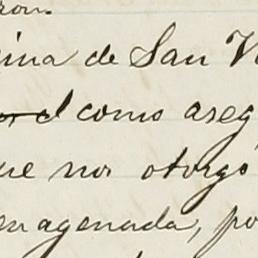 ron.
ina de San V
el como aseg
ue nos otorgó
enagenada, po